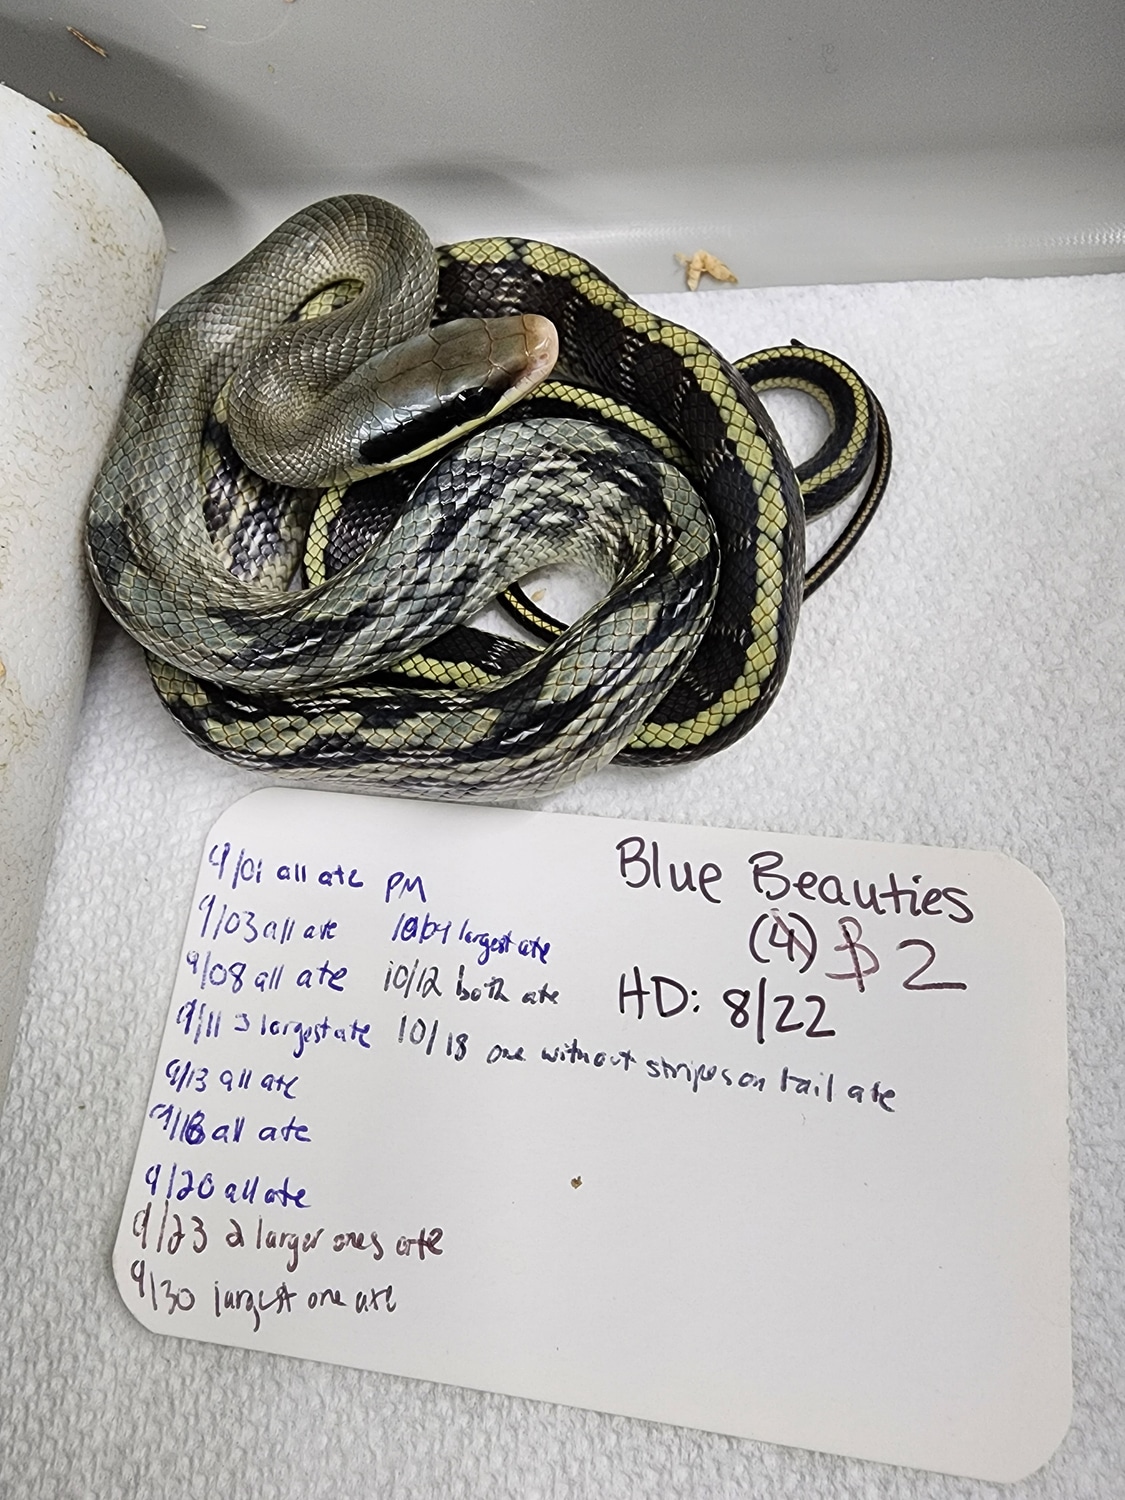 Blue Beauties
(4) 2
HD: 8/22
9/01 all ate PM
9/03 all ate
9/08 all ate
9/11 3 largest ate
9/13 all ate
9/18 all ate
9/20 all ate
9/23 2 larger ones ate
9/30 largest one ate
largest ate
10/12 both ate
10/18 one without stripes on tail ate